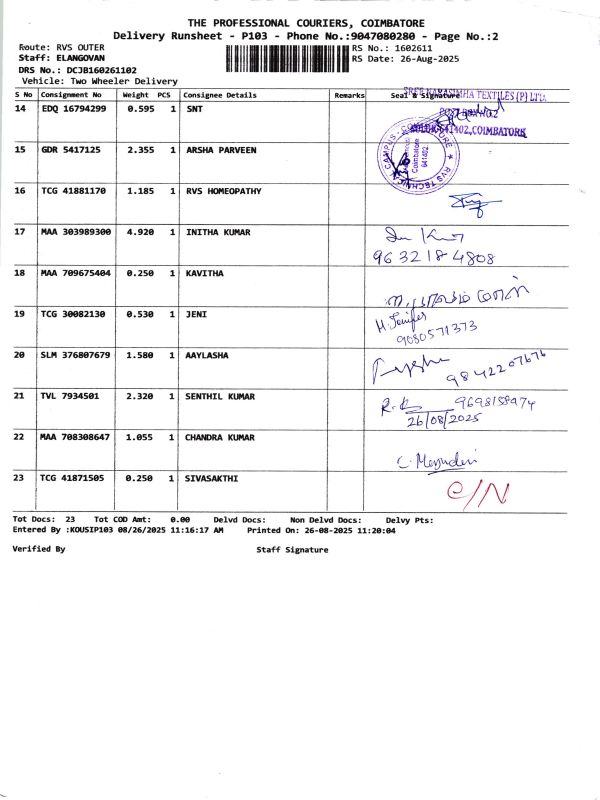 THE PROFESSIONAL COURIERS, COIMBATORE
Delivery Runsheet - P103 - Phone No.:9047080280 - Page No.:2
Route: RVS OUTER
RS No.: 1602611
Staff: ELANGOVAN
RS Date: 26-Aug-2025
DRS No.: DCJB160261102
Vehicle: Two Wheeler Delivery
S No Consignment No Weight PCS Consignee Details Remarks Seal & Signature
SREE NARASIMHA TEXTILES (P) LTD.
14 EDQ 16794299 0.595 1 SNT
641402, COIMBATORE
15 GDR 5417125 2.355 1 ARSHA PARVEEN
RVS TECHNICAL CAMPUS - COIMBATORE
Coimbatore
641402
16 TCG 41881170 1.185 1 RVS HOMEOPATHY
17 MAA 303989300 4.920 1 INITHA KUMAR
9632184808
18 MAA 709675404 0.250 1 KAVITHA
19 TCG 30082130 0.530 1 JENI
9080571373
20 SLM 376807679 1.580 1 AAYLASHA
9842207676
21 TVL 7934501 2.320 1 SENTHIL KUMAR
26/08/2025
22 MAA 708308647 1.055 1 CHANDRA KUMAR
23 TCG 41871505 0.250 1 SIVASAKTHI
C/N
Tot Docs: 23 Tot COD Amt: 0.00 Delvd Docs: Non Delvd Docs: Delvy Pts:
Entered By :KOUSIP103 08/26/2025 11:16:17 AM Printed On: 26-08-2025 11:20:04
Verified By Staff Signature